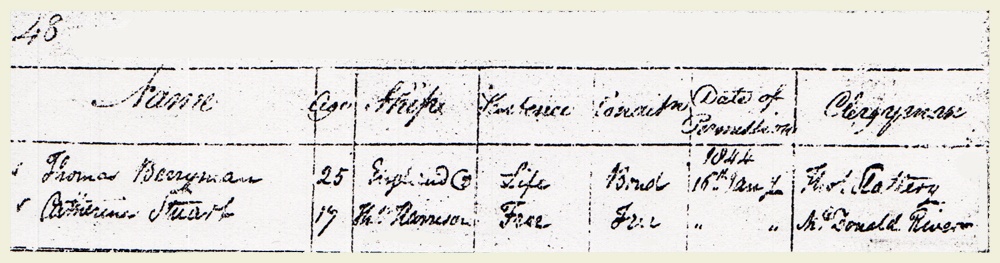 48
Name Age Ship Sentence Condition Date of Permission Clergyman
1844
Thomas Berryman 25 England Life Bond 16th Jany Slattery
Catherine Stuart 17 Harrison Free Free " " McDonald River